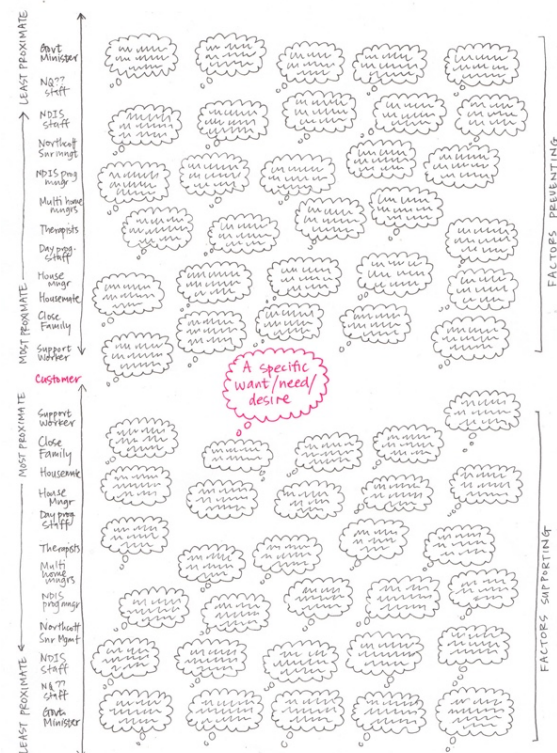 LEAST PROXIMATE
Govt
Minister
NQ??
staff
NDIS
staff
Northcott
Snr mngt
NDIS prg
mngr
Multi home
mngrs
Therapists
Day prog.
staff
House
mngr
Housemate
Close
Family
Support
Worker
MOST PROXIMATE
FACTORS PREVENTING
Customer
A specific
want/need/
desire
MOST PROXIMATE
Support
Worker
Close
Family
Housemate
House
Mngr
Day prog
Staff
Therapists
Multi
home
mngrs
NDIS
prog mngr
Northcott
Snr Mgmt
NDIS
Staff
NQ??
Staff
Govt
Minister
LEAST PROXIMATE
FACTORS SUPPORTING